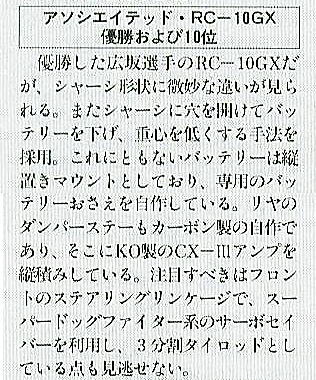 アソシエイテッド・RC−10GX
優勝および10位
優勝した広坂選手のRC−10GXだ
が、シャーシ形状に微妙な違いが見ら
れる。またシャーシに穴を開けてバッ
テリーを下げ、重心を低くする手法を
採用。これにともないバッテリーは縦
置きマウントとしており、専用のバッ
テリーおさえを自作している。リヤの
ダンパーステーもカーボン製の自作で
あり、そこにKO製のCX−Ⅲアンプを
縦積みしている。注目すべきはフロン
トのステアリングリンケージで、スー
パードッグファイター系のサーボセイ
バーを利用し、3分割タイロッドとし
ている点も見逃せない。